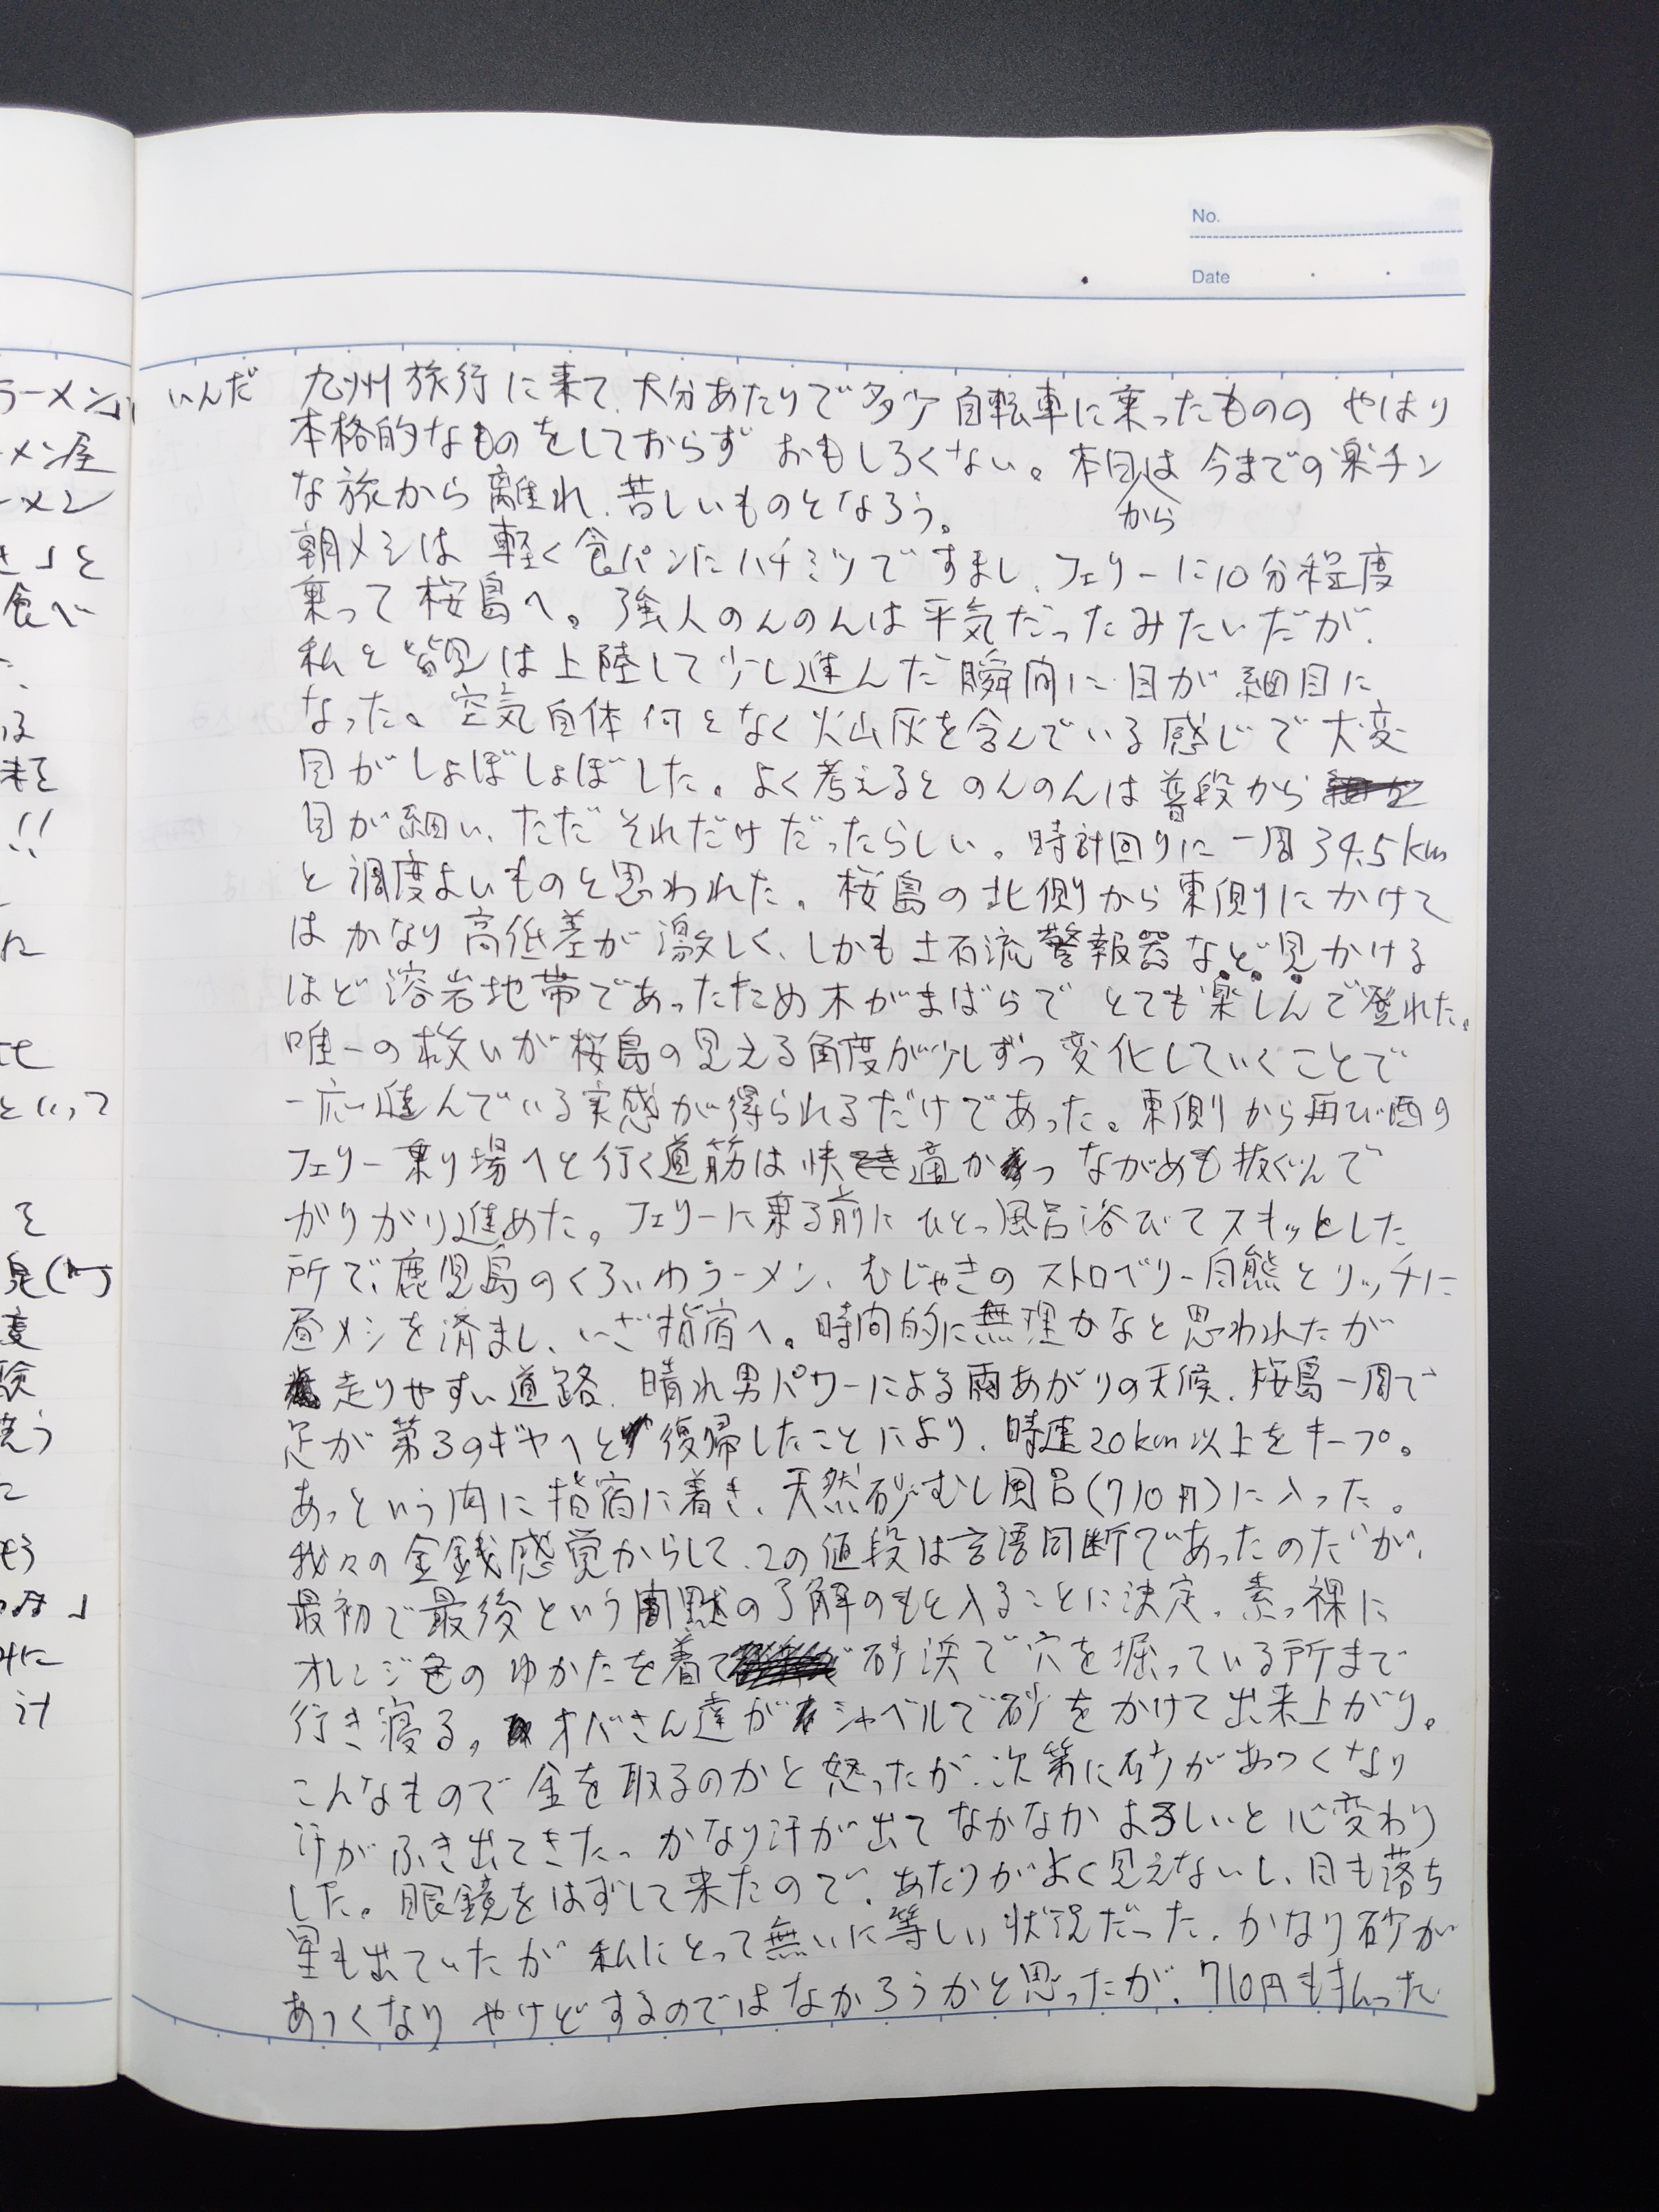 No.
Date
いんだ
九州旅行に来て、大分あたりで多少自転車に乗ったものの やはり
本格的なものをしておらず おもしろくない。本日は 今までの楽チン
から
な旅から離れ、苦しいものとなろう。
朝メシは 軽く食パンにハチミツですまし、フェリーに10分程度
乗って桜島へ。強人のんのんは平気だったみたいだが、
私と皆見は上陸して少し進んだ瞬間に目が細目に
なった。空気自体何となく火山灰を含んでいる感じで大変
目がしょぼしょぼした。よく考えるとのんのんは普段から
目が細い、ただそれだけだったらしい。時計回りに一周34.5km
と調度よいものと思われた。桜島の北側から東側にかけて
はかなり高低差が激しく、しかも土石流警報器など見かける
ほど溶岩地帯であったため木がまばらで とても楽しんで登れた。
唯一の救いが桜島の見える角度が少しずつ変化していくことで
一応進んでいる実感が得られるだけであった。東側から再び西の
フェリー乗り場へと行く道筋は快適かつ ながめも抜ぐんで
がりがり進めた。フェリーに乗る前にひとっ風呂浴びてスキッとした
所で、鹿児島のくろいわラーメン、むじゃきのストロベリー白熊とリッチに
昼メシを済まし、いざ指宿へ。時間的に無理かなと思われたが
走りやすい道路、晴れ男パワーによる雨あがりの天候、桜島一周で
足が第3のギヤへと復帰したことにより、時速20km以上をキープ。
あっという内に指宿に着き、天然砂むし風呂(710円)に入った。
我々の金銭感覚からして、この値段は言語同断であったのだが、
最初で最後という闇黙の了解のもと入ることに決定。素っ裸に
オレンジ色のゆかたを着て 砂浜で穴を掘っている所まで
行き寝る。オバさん達がシャベルで砂をかけて出来上がり。
こんなもので金を取るのかと怒ったが、次第に砂があつくなり
汗がふき出てきた。かなり汗が出てなかなかよろしいと心変わり
した。眼鏡をはずして来たので、あたりがよく見えないし、日も落ち
星も出ていたが 私にとって無いに等しい状況だった。かなり砂が
あつくなり やけどするのではなかろうかと思ったが、710円も払った